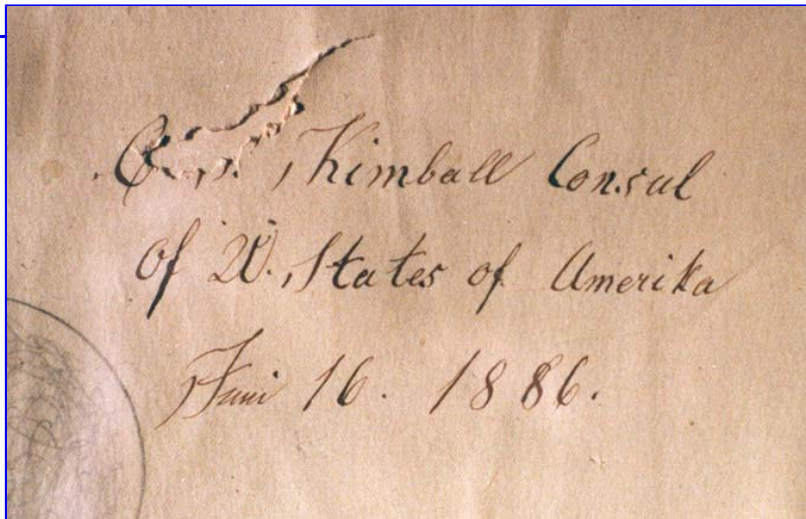 Kimball Consul
of U. States of Amerika
Juni 16. 1886.